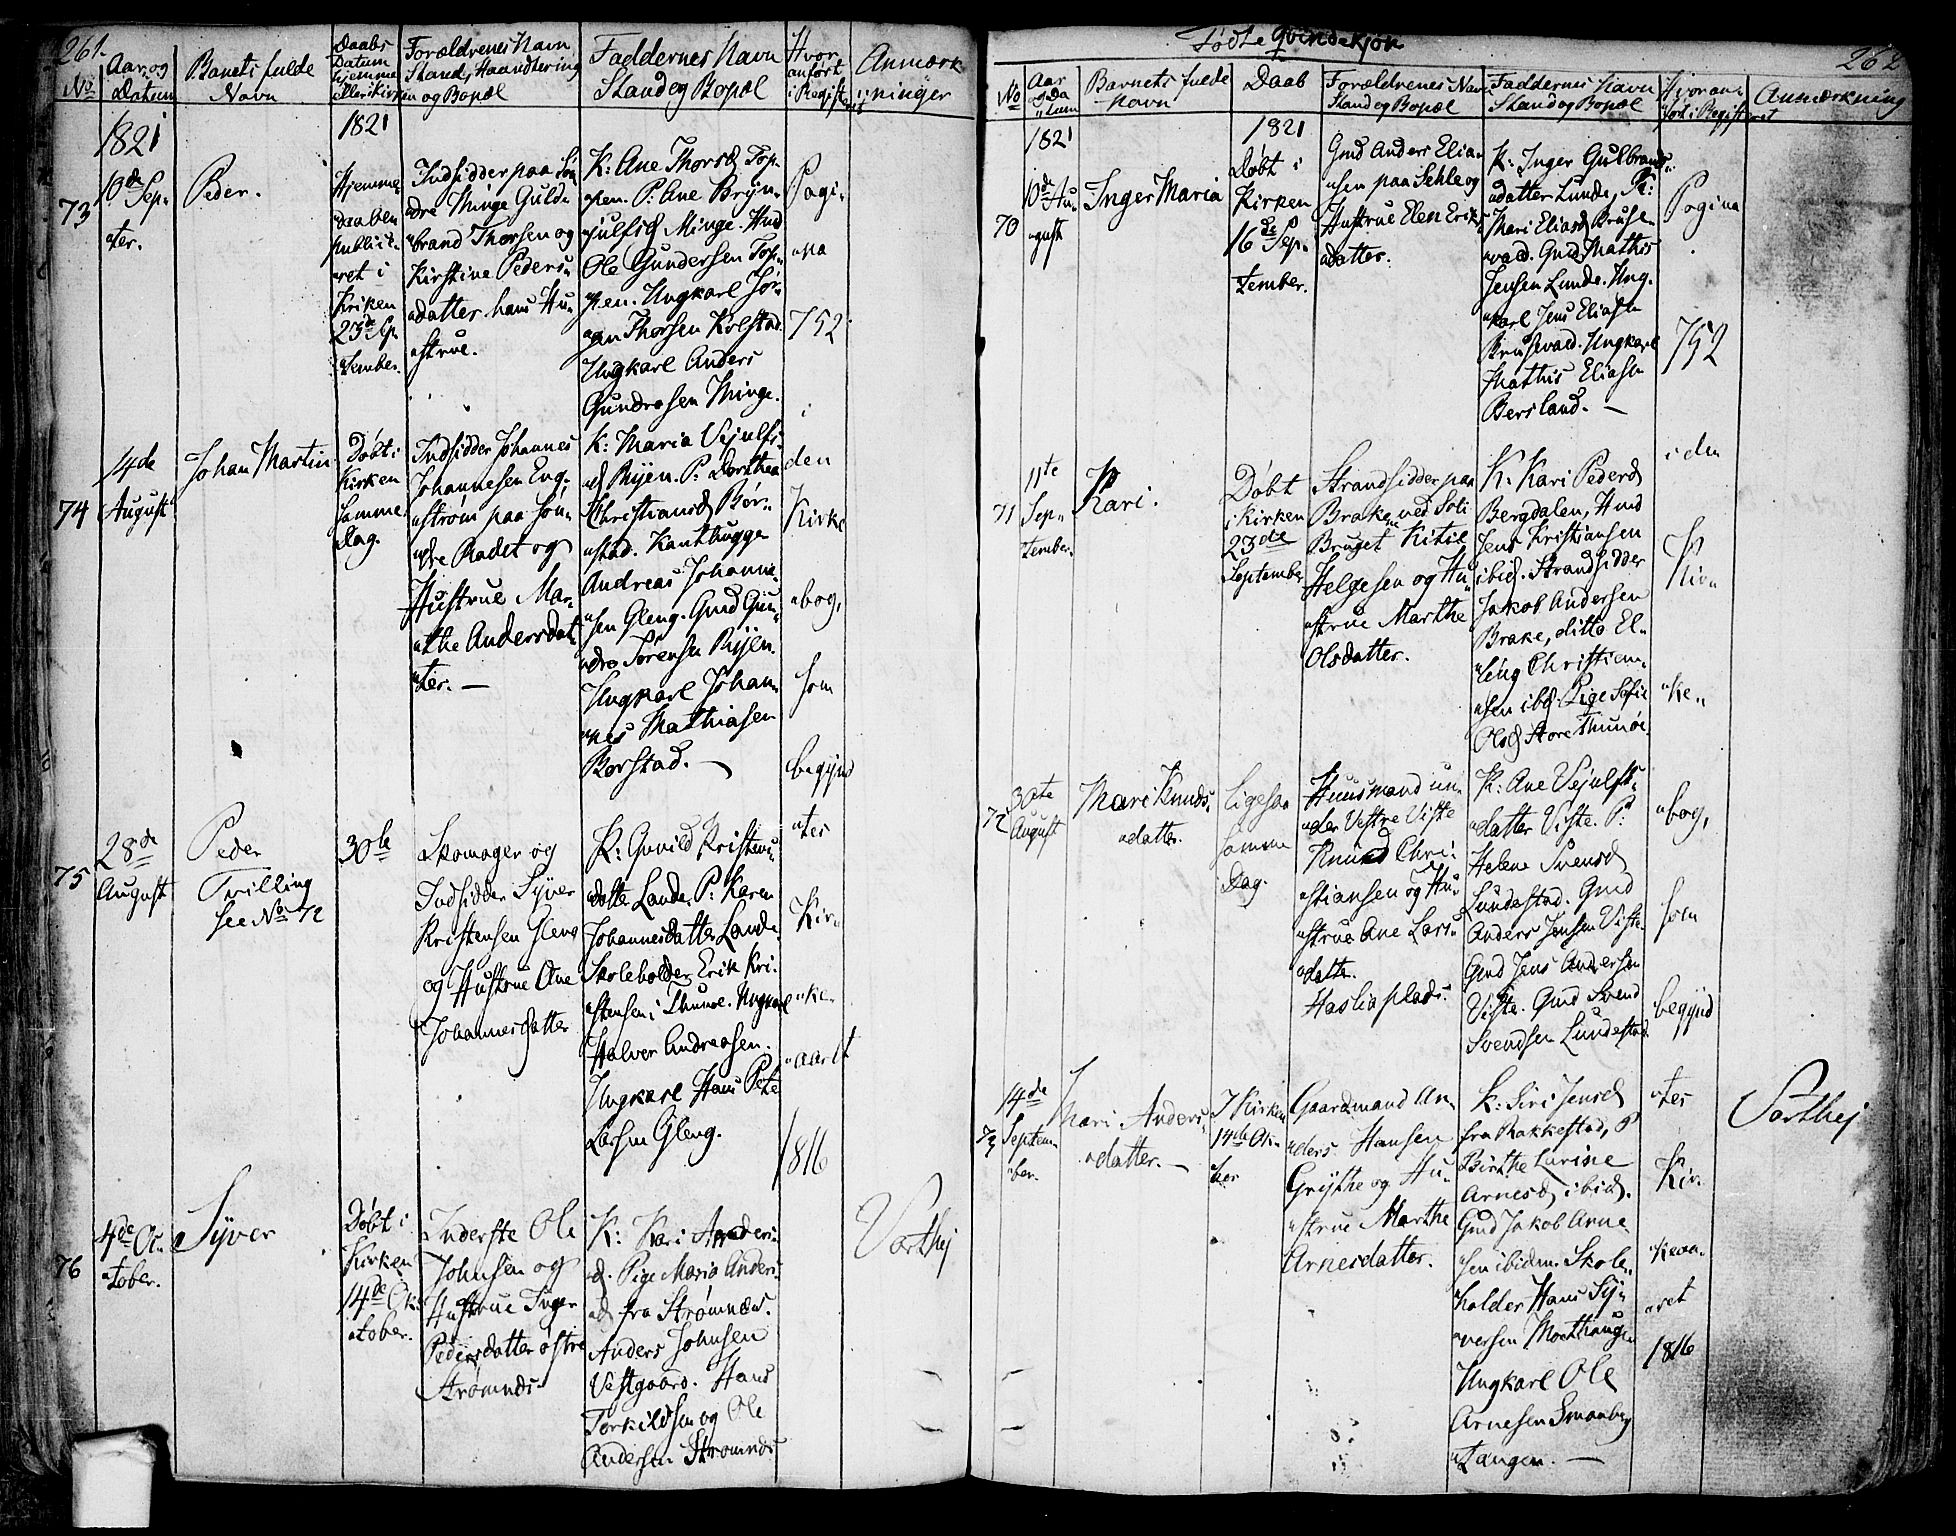 261.
No
Aar og
Datum
Barnets fulde
Navn
Daabs
Datum
hjemme
eller i Kirken
Forældrenes Navn
Stand, Haandtering
og Bopæl
Faddernes Navn
Stand og Bopæl
Hvor
anført
i Registeret
Anmærk
ninger
1821
1821
73
10de Sep-
ter.
Peder.
Hjemme
daaben
publice-
ret i
Kirken
23de Sep
tember.
Indsidder paa Søn
dre Minge Guld-
brand Thorsen og
Kirstine Peders-
datter hans Hu-
strue.
K: Ane Thorsd Top-
pen. P: Ane Bryn-
julfsd Minge. Gmd
Ole Gundersen Top-
pen. Ungkarl Jør-
gen Thorsen Kolstad
Ungkarl Anders
Gundersen Minge.
Pagi-
na
752
i
den
Kirke
bog,
som
begynd
tes
Kir-
ke-
aaret
1816
74
14de
August
Johan Martin
Døbt i
Kirken
samme
Dag.
Indsidder Johannes
Johannesen Eng-
strøm paa Søn-
dre Radet og
Hustrue Mar-
the Andersdat
ter. —
K: Maria Vejulfs
d Ryen. P: Dorthea
Christiansd Bør-
stad. Kanthugge
Andreas Johanne-
sen Gleng. Gmd Gun-
der Sørensen Ryen.
Ungkarl Johan-
nes Mathiasen
Børstad. —
75
28de
August
Peder
Trilling
see No 72
30te
Skomager og
Indsidder Syver
Kristensen Gleng
og Hustrue Ane
Johannesdatter
K: Gunild Kristens-
datte Lande. P: Karen
Johannesdatter Lande.
Skoleholder Erik Kri-
stensen i Thune. Ungkarl
Halvor Andreasen.
Ungkarl Hans Pete
Larsen Gleng.
76
4de Oc-
tober.
Syver
Døbt i
Kirken
14de Ok-
tober.
Inderste Ole
Johnsen og
Hustrue Inger
Pedersdatter østre
Strømnes
K: Kari Anders-
d. Pige Maria Anders-
d fra Strømnes.
Anders Johnsen
Vestgaard. Hans
Torkildsen og Ole
Andersen Strømnes
Varthej
Fødte Qvindekjøn
262
No
Aar
og Da
tum
Barnets fulde
Navn
Daab
Forældrenes Nav
Stand og Bopæl
Faddernes Navn
Stand og Bopæl
Hvor an-
ført i Registeret
Anmærkning
1821
1821
70
10de Au-
gust
Inger Maria
Døbt i
Kirken
16de Sep-
tember.
Gmd Anders Elia-
sen paa Sehle og
Hustrue Elen Eriks
datter.
K: Inger Gulbrands-
datter Lunde, P:
Mari Eliasd Bruse
vald. Gmd Mathis
Jensen Lunde. Ung-
karl Jens Eliasen
Brusevald. Ungkarl
Mathis Eliasen
Bersland. —
Pagina
752
i den
Kir-
ke-
bog,
som
begynd
tes
Kir-
keaa-
ret
1816
71
11te
Sep-
tember.
Kari.
Døbt
i Kirken
23de
September
Strandsidder paa
Brake ved Soli
Bruget Kitil
Helgesen og Hu-
strue Marthe
Olsdatter.
K: Kari Pedersd
Bergdalen, Gmd
Jens Kristiansen
ibid. Strandsidder
Jakob Andersen
Brake, ditto El-
ling Christian-
sen ibd. Pige Sofie
Olsd Store Thunøe.
72
30te
August
Mari Knuds-
datter.
Ligesaa
samme
Dag.
Huusmand un-
der Vestre Viste
Knud Chri-
stiansen og Hu-
strue Ane Lars-
datter.
Hasliaplads.
K: Ane Vejulfs-
datter Viste. P:
Helene Svensd
Lundestad. Gmd
Anders Jensen Viste
Gmd Jens Andersen
Viste. Gmd Svend
Svendsen Lundestad.
73
14de
Septem-
ber.
Mari Anders-
datter. —
I Kirken
14de Ok-
ber
Gaardmand An-
ders Hansen
Grythe og Hu-
strue Marthe
Arnesdatter.
K: Siri Jensd
fra Rakkestad, P
Birthe Lurine
Arnesd, ibid.
Gmd Jakob Arne
sen ibidm. Skole-
holder Hans Sy-
versen Moethaugen
Ungkarl Ole
Arnesen Smaaberg
tangen. —
Varthej